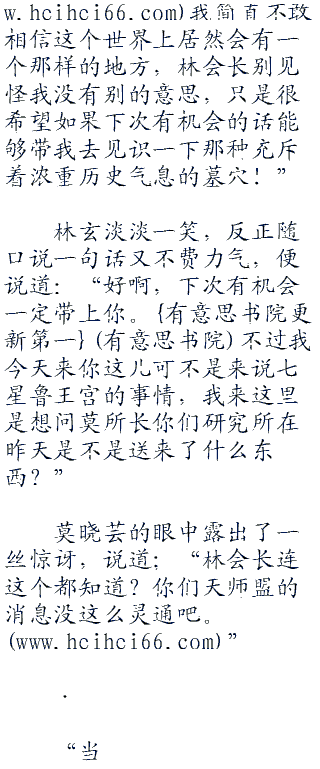 w.hcihci66.com)我简直不敢
相信这个世界上居然会有一
个那样的地方，林会长别见
怪我没有别的意思，只是很
希望如果下次有机会的话能
够带我去见识一下那种充斥
着浓重历史气息的墓穴！”
林玄淡淡一笑，反正随
口说一句话又不费力气，便
说道：“好啊，下次有机会
一定带上你。{有意思书院更
新第一}(有意思书院)不过我
今天来你这儿可不是来说七
星鲁王宫的事情，我来这里
是想问莫所长你们研究所在
昨天是不是送来了什么东
西？”
莫晓芸的眼中露出了一
丝惊讶，说道：“林会长连
这个都知道？你们天师盟的
消息没这么灵通吧。
(www.hcihci66.com)”
.
“当